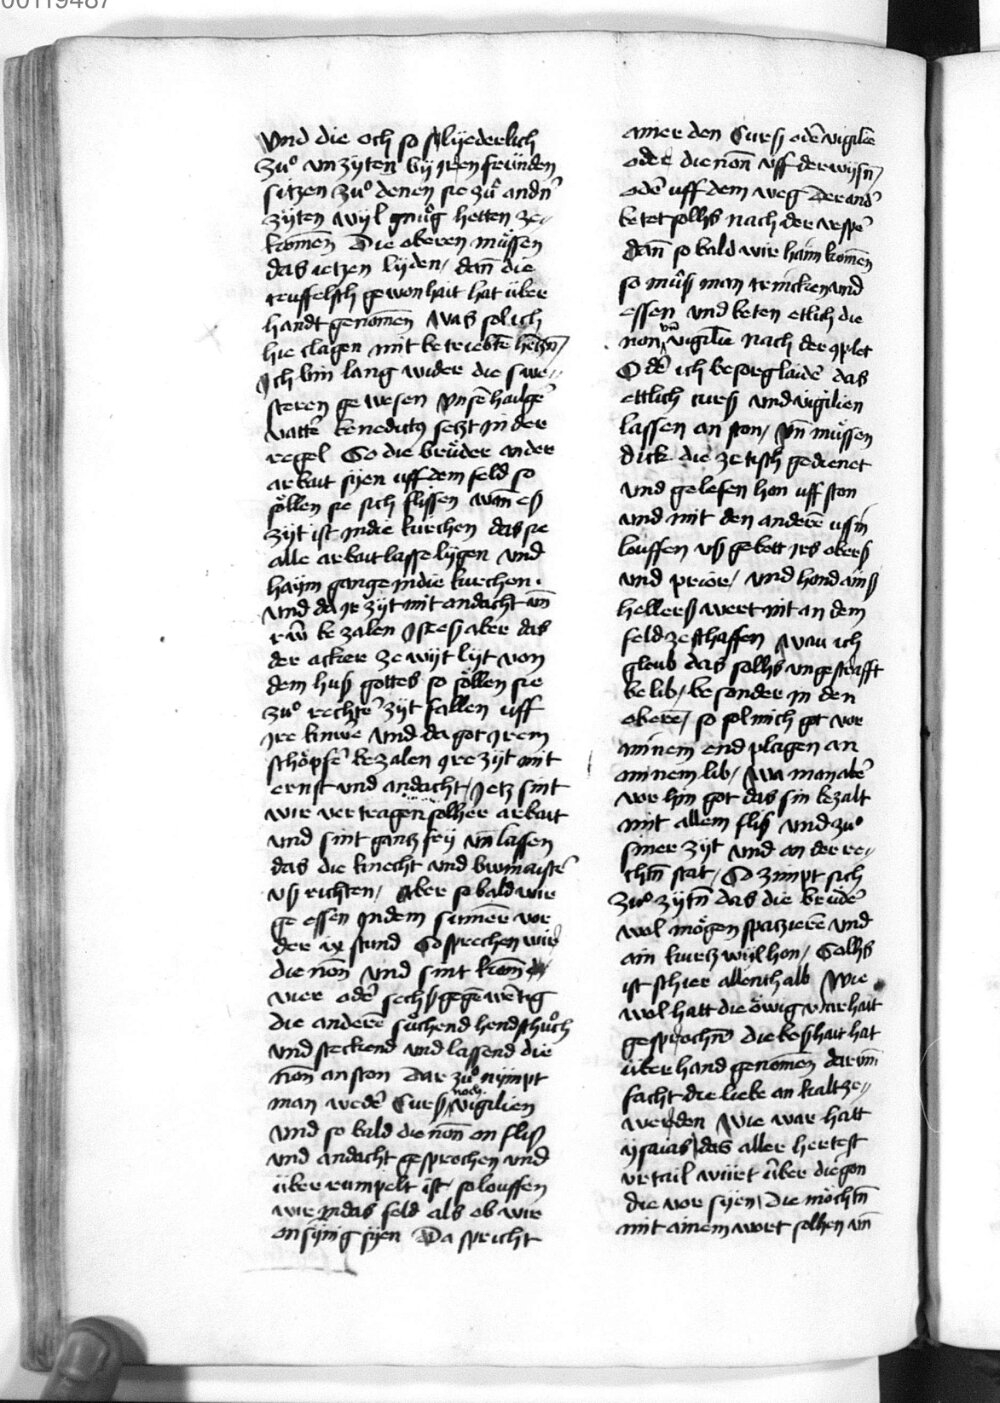 00119487
Vnd die och so flyederlich
zuͦ vnzyten by jren fründen
sitzen zuͦ denen sie zuͦ andn̄
zyten wyl gnuͦg hetten ze
komen Die oberen müssen
das ietzen lyden / dan̄ die
teuffelsch gewonhait hat über
handt genom̄en Was sol ich
hie clagen mit betriebte hertzn̄
Ich bin lang wider die swe
steren gewesen Vnser hailge
vatter benedictus setzt in der
regel So die brüder an der
arbait syen uff dem feld so
söllen sie sich flissen wan̄ es
zyt ist in die kirchen das sie
alle arbait lasse lygen vnd
haym gange in die kirchen .
vnd da jr zyt mit andacht vn̄
rüw bezalen Ist es aber das
der acker ze wyt lyt von
dem hus gottes so söllen sie
zuͦ rechter zyt fallen uff
jre kniwe vnd da got jrem
schöpfer bezalen jre zyt mit
ernst vnd andacht / Jetz sint
wir vertragen solher arbait
vnd sint gantz fry vn̄ lassen
das die knecht vnd bwmaister
vß richten / Aber so bald wir
ge essen in dem summer vor
der ix stund So sprechen wir
die non̄ vnd sint kom
vier oder sechs gegenwertig
die anderē süchend hendschuͦch
vnd steckend vnd lassend die
non̄ anston Dar zuͦ nympt
man weder Curß noch vigilien
vnd so bald die non̄ on fliß
vnd andacht gesprochen vnd
überrumpelt ist / so louffen
wir in das feld als ob wir
onsynig syen Da spricht
ainer den Curß oder vigilie
oder die non̄ uff der wysn̄
oder uff dem weg Der ander
betet sollhs nach der vesper
dan̄ so bald wir haim komen
so muͦß man trincken vnd
essen vnd beten etlich die
non vn̄ vigilie nach der 9plet
Oder ich besorg laider das
ettlich curß vnd vigilien
lassen an ston / vn̄ müssen
dick die ze tisch gedienet
vnd gelesen hon uff ston
vnd mit den anderē ussin
louffen vß gebott irs obers
vnd prior / vnd hond ains
hellers wert nit an dem
feld ze schaffen Wan ich
gloub das sollhs vngestrafft
belib / besonder in den
oberē / so sol mich got vor
minem end plagen an
minem lib / Wa man aber
vorhin got das sin bezalt
mit allem fliß vnd zuͦ
siner zyt vnd an der re
chtn̄ stat / So zimpt sich
zuͦ zytn̄ das die brüder
wol mögen spazierē vnd
ain kurtzwyl hon / Sollhs
ist schier allenthalb Wie
wol hatt die öwig warhait
gesprochn̄ die boßhait hat
über hand genom̄en darum̄
facht die liebe an kalt ze
werden Wie war hatt
ysaias das aller hertest
vrtail wirt über die gon
die vor syen / Die möchtn̄
mit ainem wort solhen vn̄